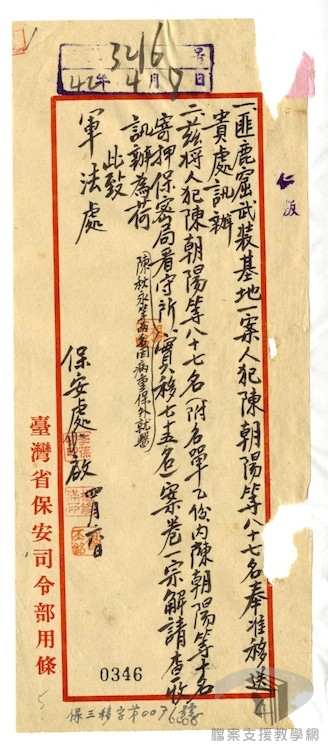 3246 号
42年4月7日
仁股
一、匪鹿窟武裝基地一案人犯陳朝陽等八十七名奉准移送
貴處訊辦
二、茲將人犯陳朝陽等八十七名(附名單乙份內陳朝陽等十名
寄押保密局看守所
陳秋永等兩名因病重保外就醫
實移七五名)一案卷一宗解請查收
訊辦為荷
此致
軍法處
保安處啟
四月六日
臺灣省保安司令部用條
0346
5
保三移字第007
檔案支援教學網